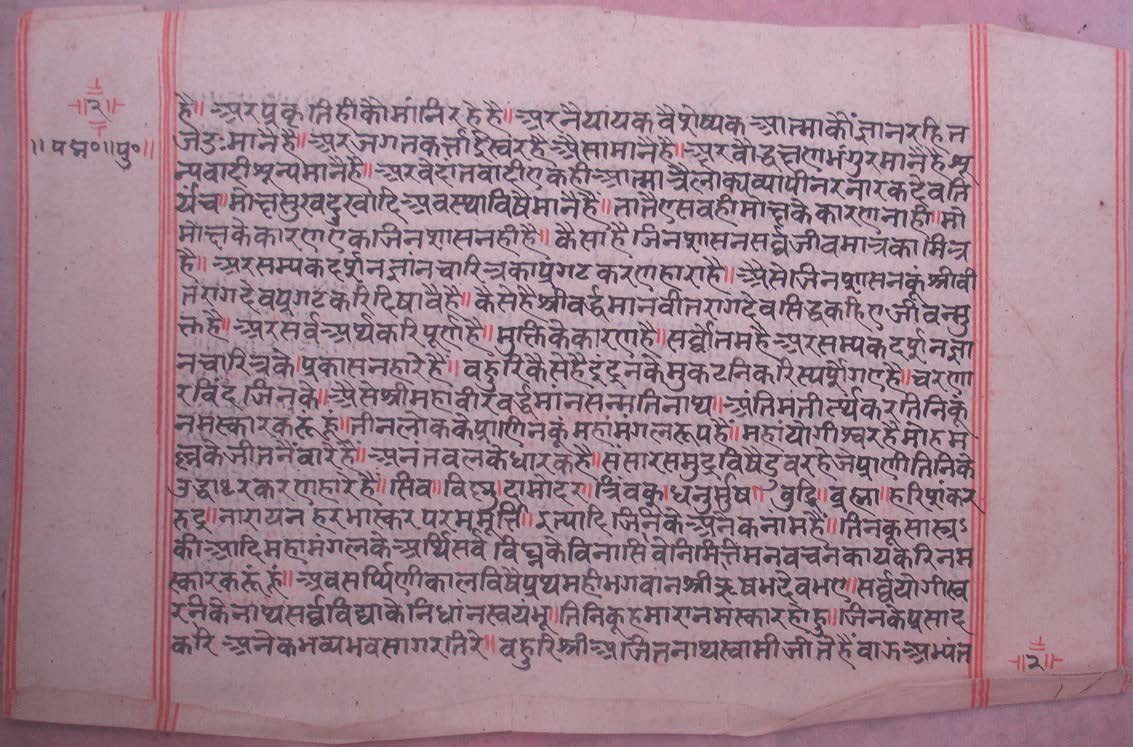 २
॥पद्म०॥पु०॥
है॥ अर प्रकृतिही कौ मांनि रहे है॥ अर नैयायक वैशेष्यक आत्मा कौं ज्ञान रहित
जड मानै है॥ अर जगतकर्त्ता ईस्वर है अैसा मानै है॥ अर बौद्ध क्षणभंगुर मानै है शू
न्यवादी शून्य मानै है॥ अर वेदांतवादी एक ही आत्मा त्रैलोक्यव्यापी नर नारक देव ति
र्यंच मोक्ष सुख दुखादि अवस्था विषै मानै है॥ तातै ए सब ही मोक्ष के कारण नाही॥ मो
मोक्ष के कारण एक जिनशासन ही है॥ कैसा है जिनशासन सर्व जीव मात्र का मित्र
है॥ अर सम्यक दर्शन ज्ञांन चारित्र का प्रगट करणहारा है॥ अैसे जिनशासन कूं श्री वी
तराग देव प्रगट करि दिषावै है॥ कैसे है श्री वर्द्धमान वीतराग देव सिद्ध कहिए जीवन्मु
क्त है॥ अर सर्व अर्थ करि पूर्ण है॥ मुक्ति के कारण है॥ सर्वोत्तम है अर सम्यक दर्शन ज्ञा
न चारित्र के प्रकासनहारे है॥ बहुरि कैसे है इंद्रन के मुकटनि करि स्पर्शे गए है॥ चरणा
रविंद जिनके॥ अैसे श्री महावीर वर्द्धमांन सन्मतिनाथ॥ अंतिम तीर्त्थकर तिनि कूं
नमस्कार करूं हूं॥ तीन लोक के प्राणिन कूं महा मंगल रूप है॥ महा योगीश्वर है मोह म
ल्ल के जीतनैंवारे है॥ अनंत बल के धारक है॥ संसार समुद्र विषै डुबर हे जे प्राणी तिनि के
उद्धार करणहार है॥ सिव॥ विष्णु दामोदर॥ त्रिंबक॥ बुद्धि॥ ब्रह्मा॥ हरि शंकर
रुद्र॥ नारायन हर भास्कर परममूर्त्ति॥ इत्यादि जिनके अनेक नाम है॥ तिनकू सास्त्र
की आदि महा मंगल के अर्थि सर्व विघ्न के विनासिवे निमित्त मन वचन काय करि नम
स्कार करूं हूं॥ अवसर्प्पिणी काल विषै प्रथम ही भगवान श्री ऋषभदेव भए॥ सर्व योगीस्व
रनि के नाथ सर्व विद्या के निधान स्वयंभू॥ तिनि कू हमारा नमस्कार होहु॥ जिनके प्रसाद
करि अनेक भव्य भवसागर तिरे॥ बहुरि श्री अजितनाथ स्वामी जीते है बाह्य अभ्यंत
२